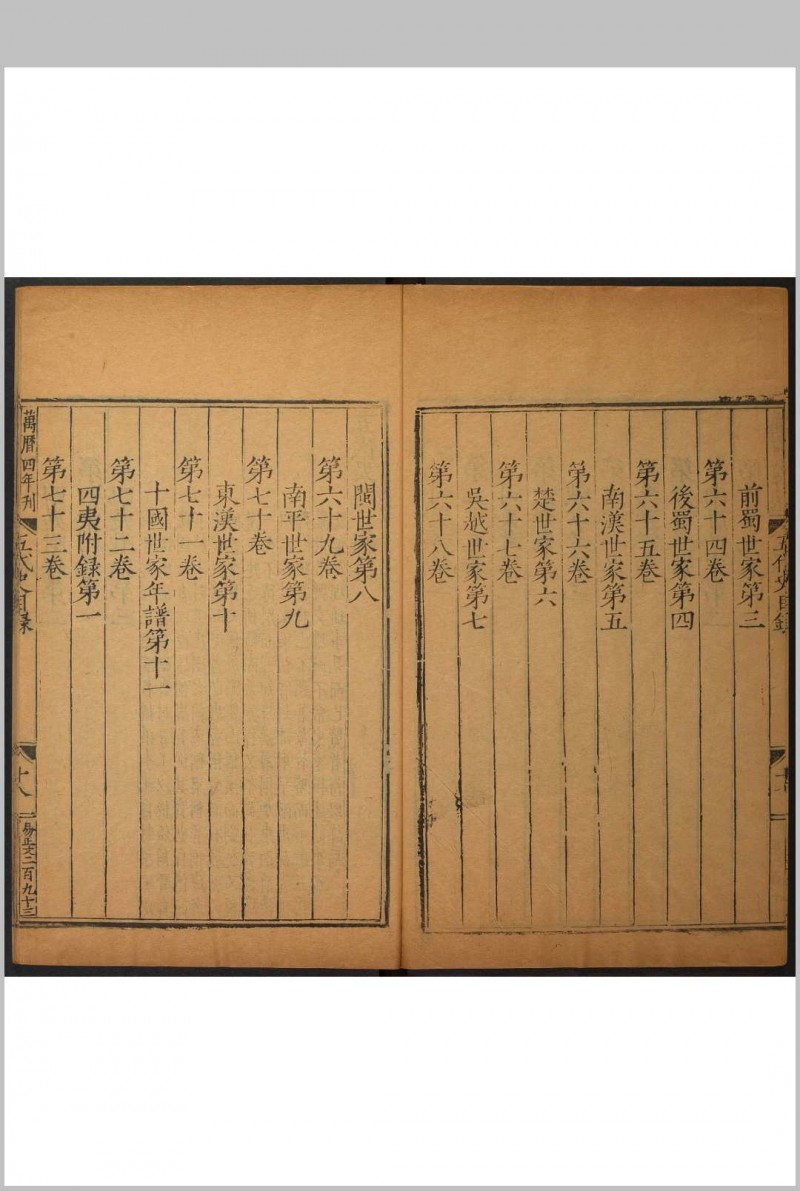 五代史目録
前蜀世家第三
第六十四卷
後蜀世家第四
第六十五卷
南漢世家第五
第六十六卷
楚世家第六
第六十七卷
吳越世家第七
第六十八卷
閩世家第八
第六十九卷
南平世家第九
第七十卷
東漢世家第十
第七十一卷
十國世家年譜第十一
第七十二卷
四夷附録第一
第七十三卷
萬曆四年刊
五代史目録
十八
易止文二百九十三